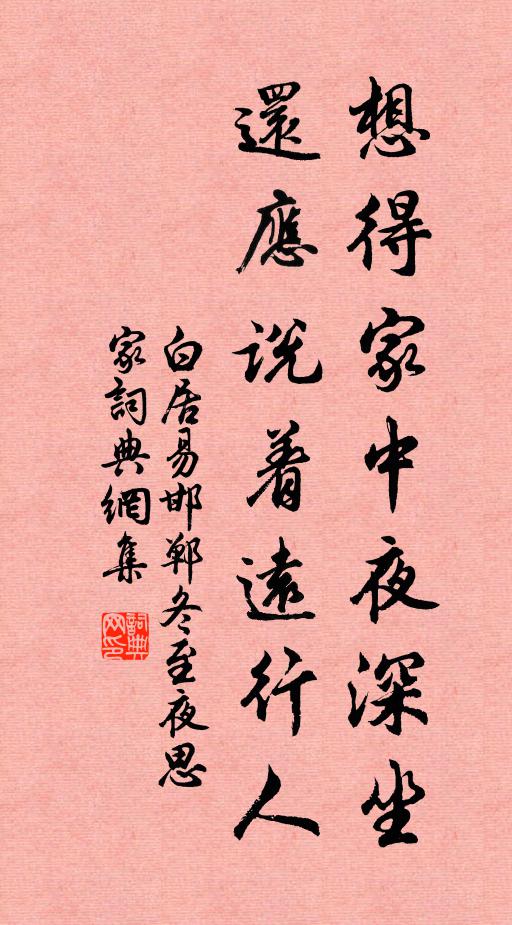 想得家中夜深坐
還應説着遠行人
白居易邯鄲冬至夜思
家詞典網集
詞典网印